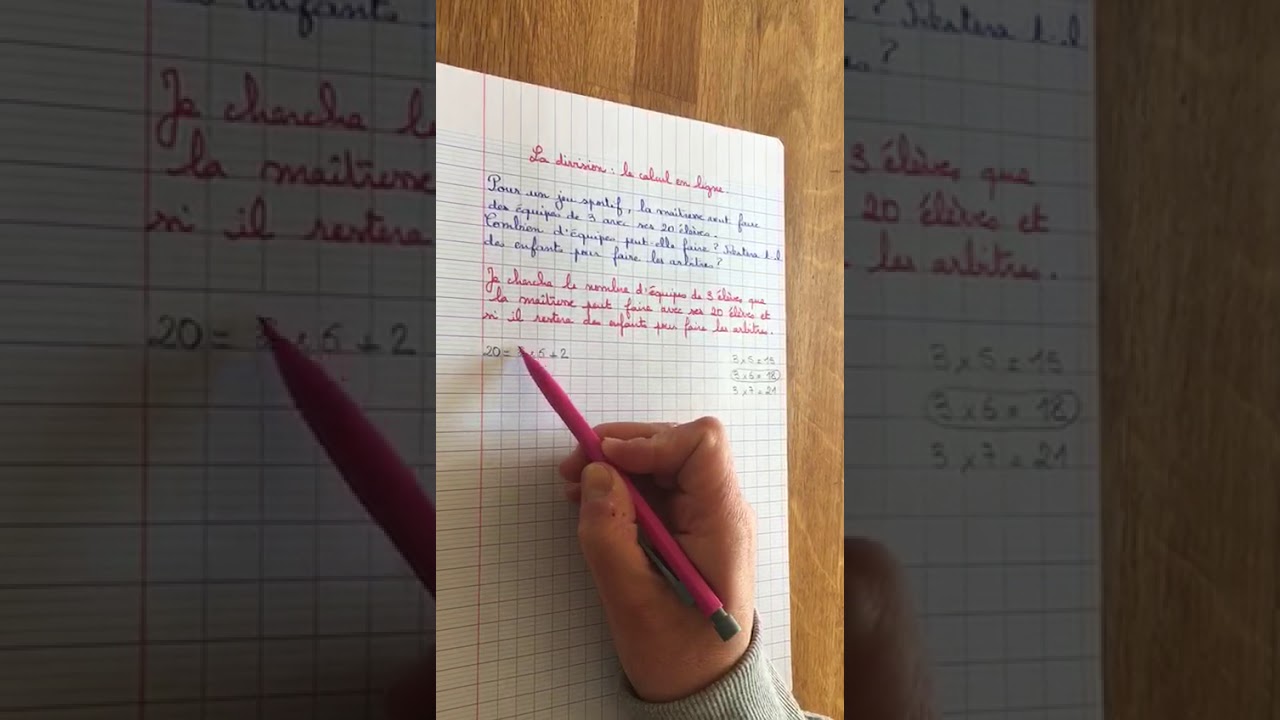 La division : le calcul en ligne.
Pour un jeu sportif, la maîtresse veut faire
des équipes de 3 avec ses 20 élèves.
Combien d'équipes peut-elle faire ? Restera-t-il
des enfants pour faire les arbitres ?
Je cherche le nombre d'équipes de 3 élèves que
la maîtresse peut faire avec ses 20 élèves et
si il restera des enfants pour faire les arbitres.
20 = 3 x 6 + 2
3 x 5 = 15
3 x 6 = 18
3 x 7 = 21